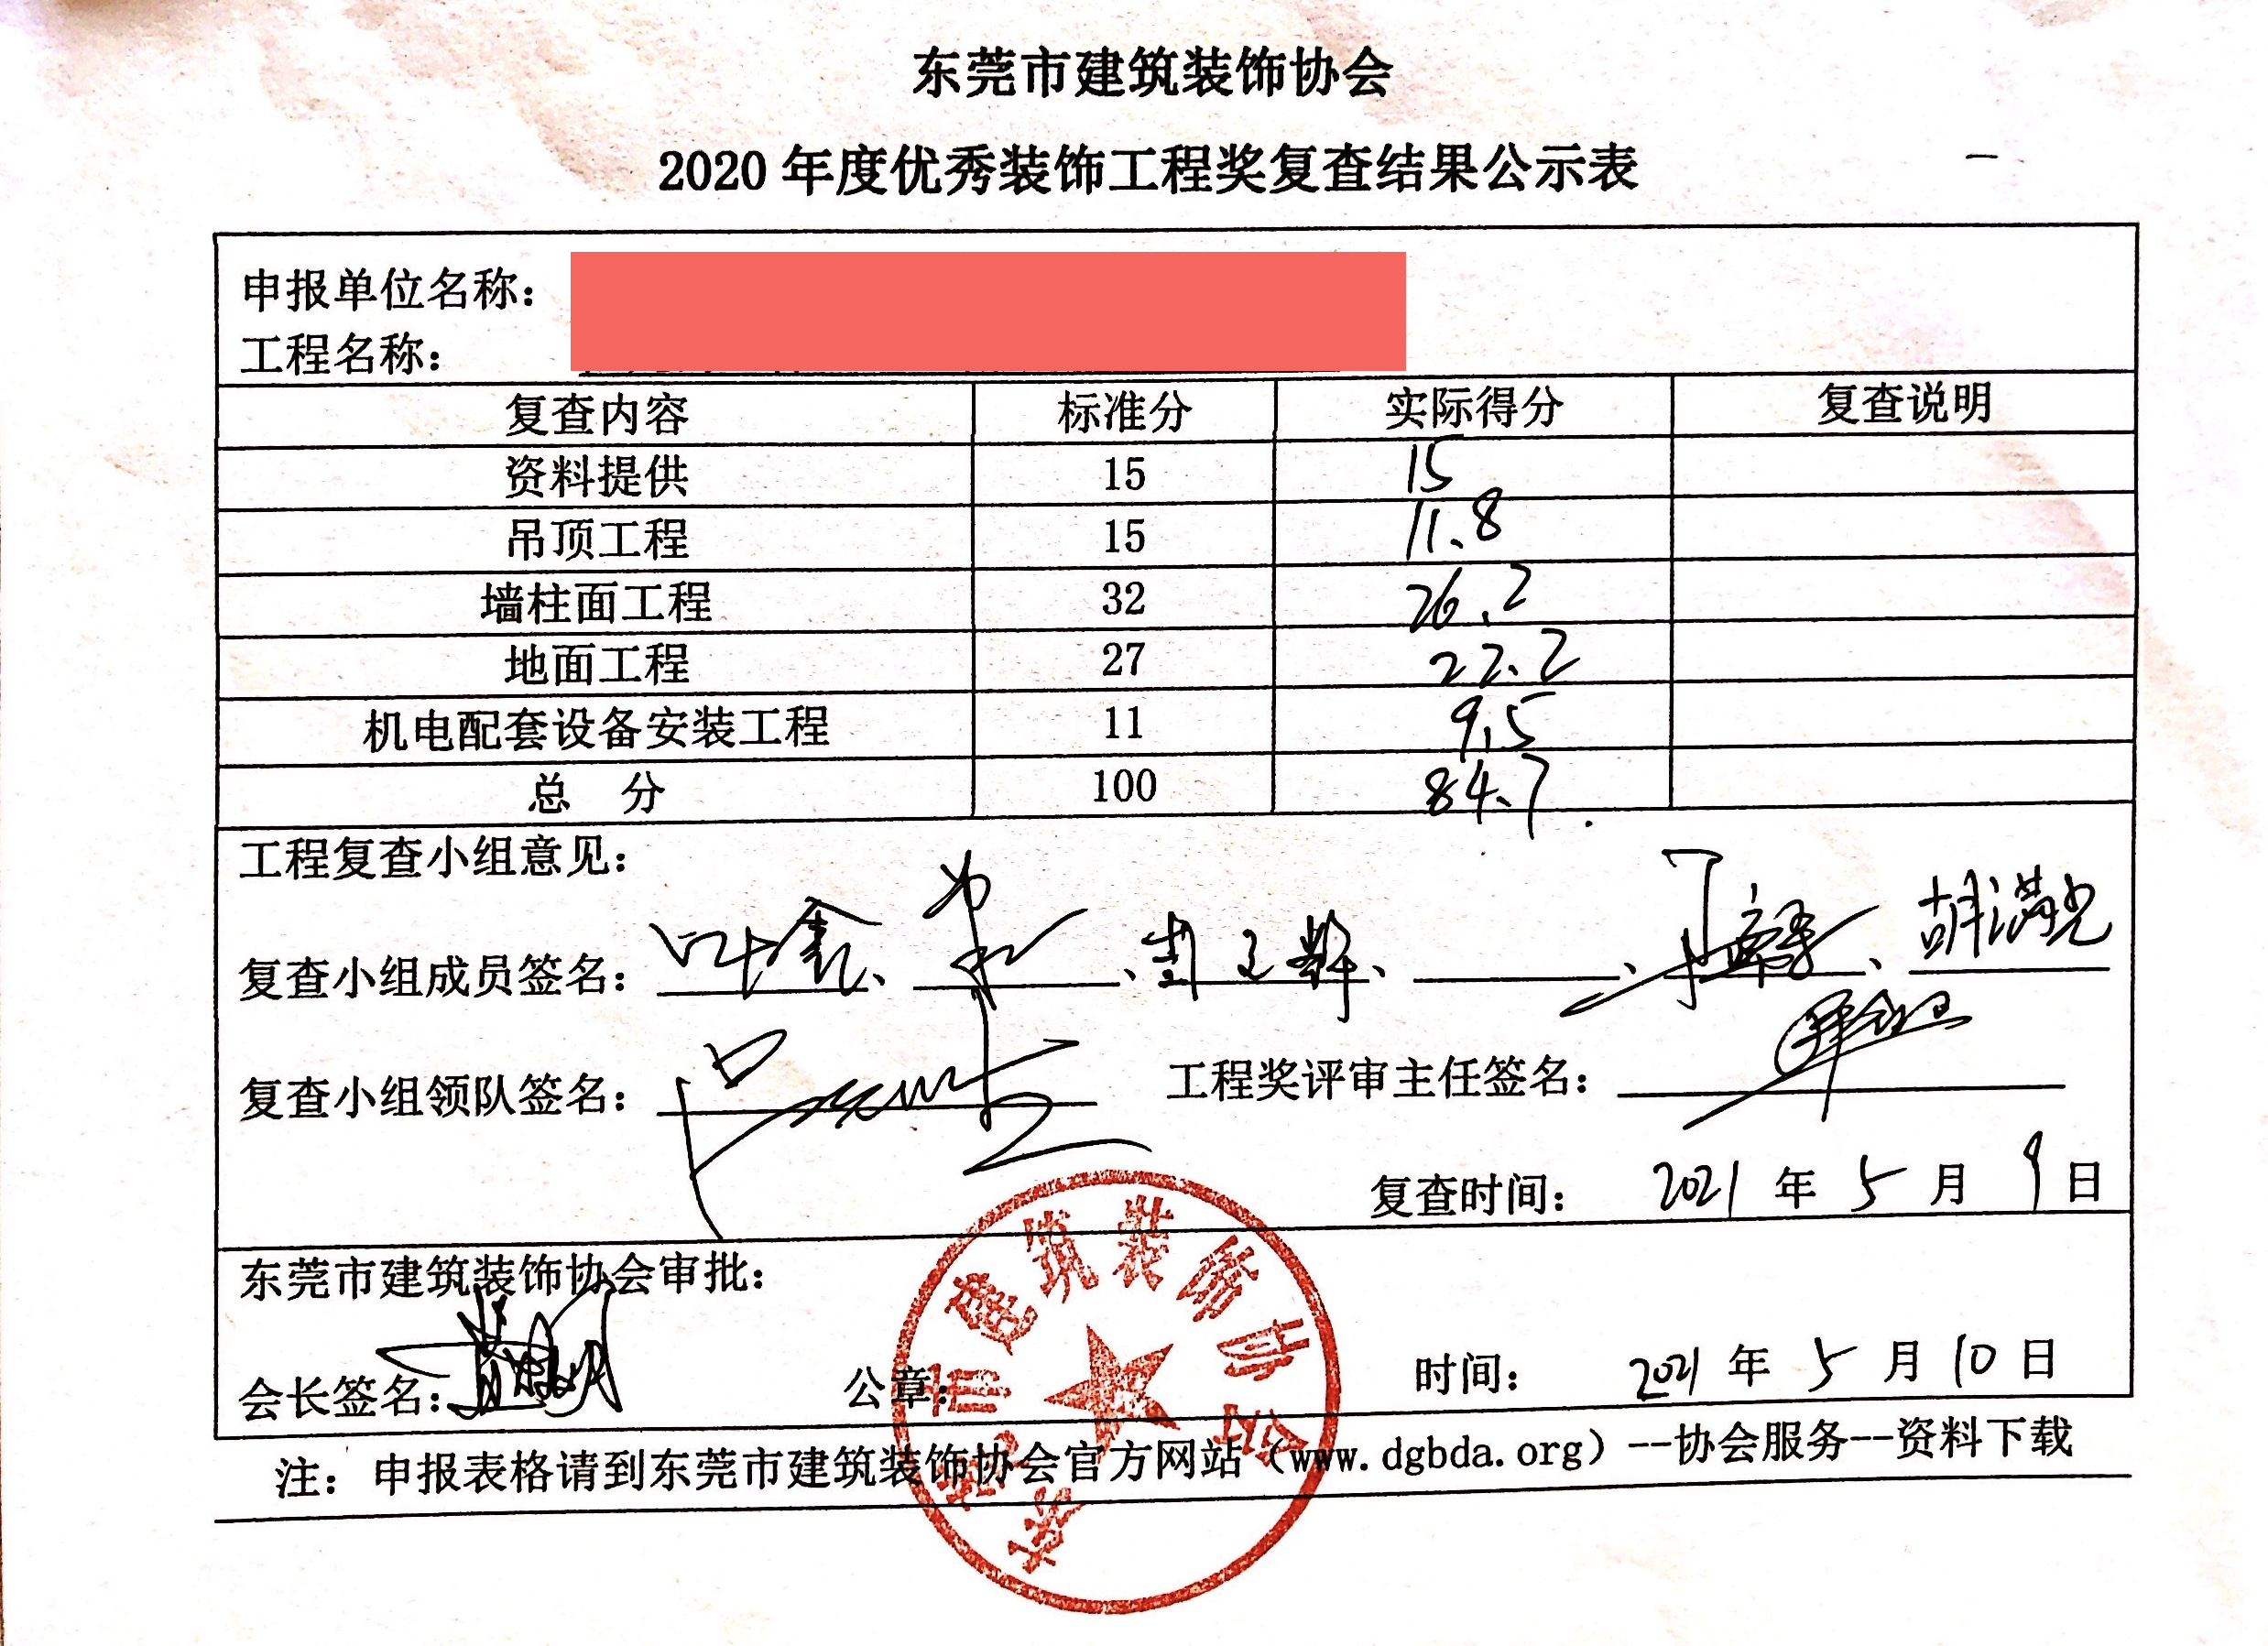 东莞市建筑装饰协会
2020 年度优秀装饰工程奖复查结果公示表
申报单位名称：
工程名称：
复查内容 标准分 实际得分 复查说明
资料提供 15 15
吊顶工程 15 11.8
墙柱面工程 32 26.2
地面工程 27 22.2
机电配套设备安装工程 11 9.5
总 分 100 84.7
工程复查小组意见：
复查小组成员签名：叶鑫、、、、、胡满光
复查小组领队签名： 工程奖评审主任签名：
复查时间： 2021 年 5 月 9 日
东莞市建筑装饰协会审批：
会长签名： 公章： 时间： 2021 年 5 月 10 日
东莞市建筑装饰协会
注：申报表格请到东莞市建筑装饰协会官方网站（www.dgbda.org）--协会服务--资料下载